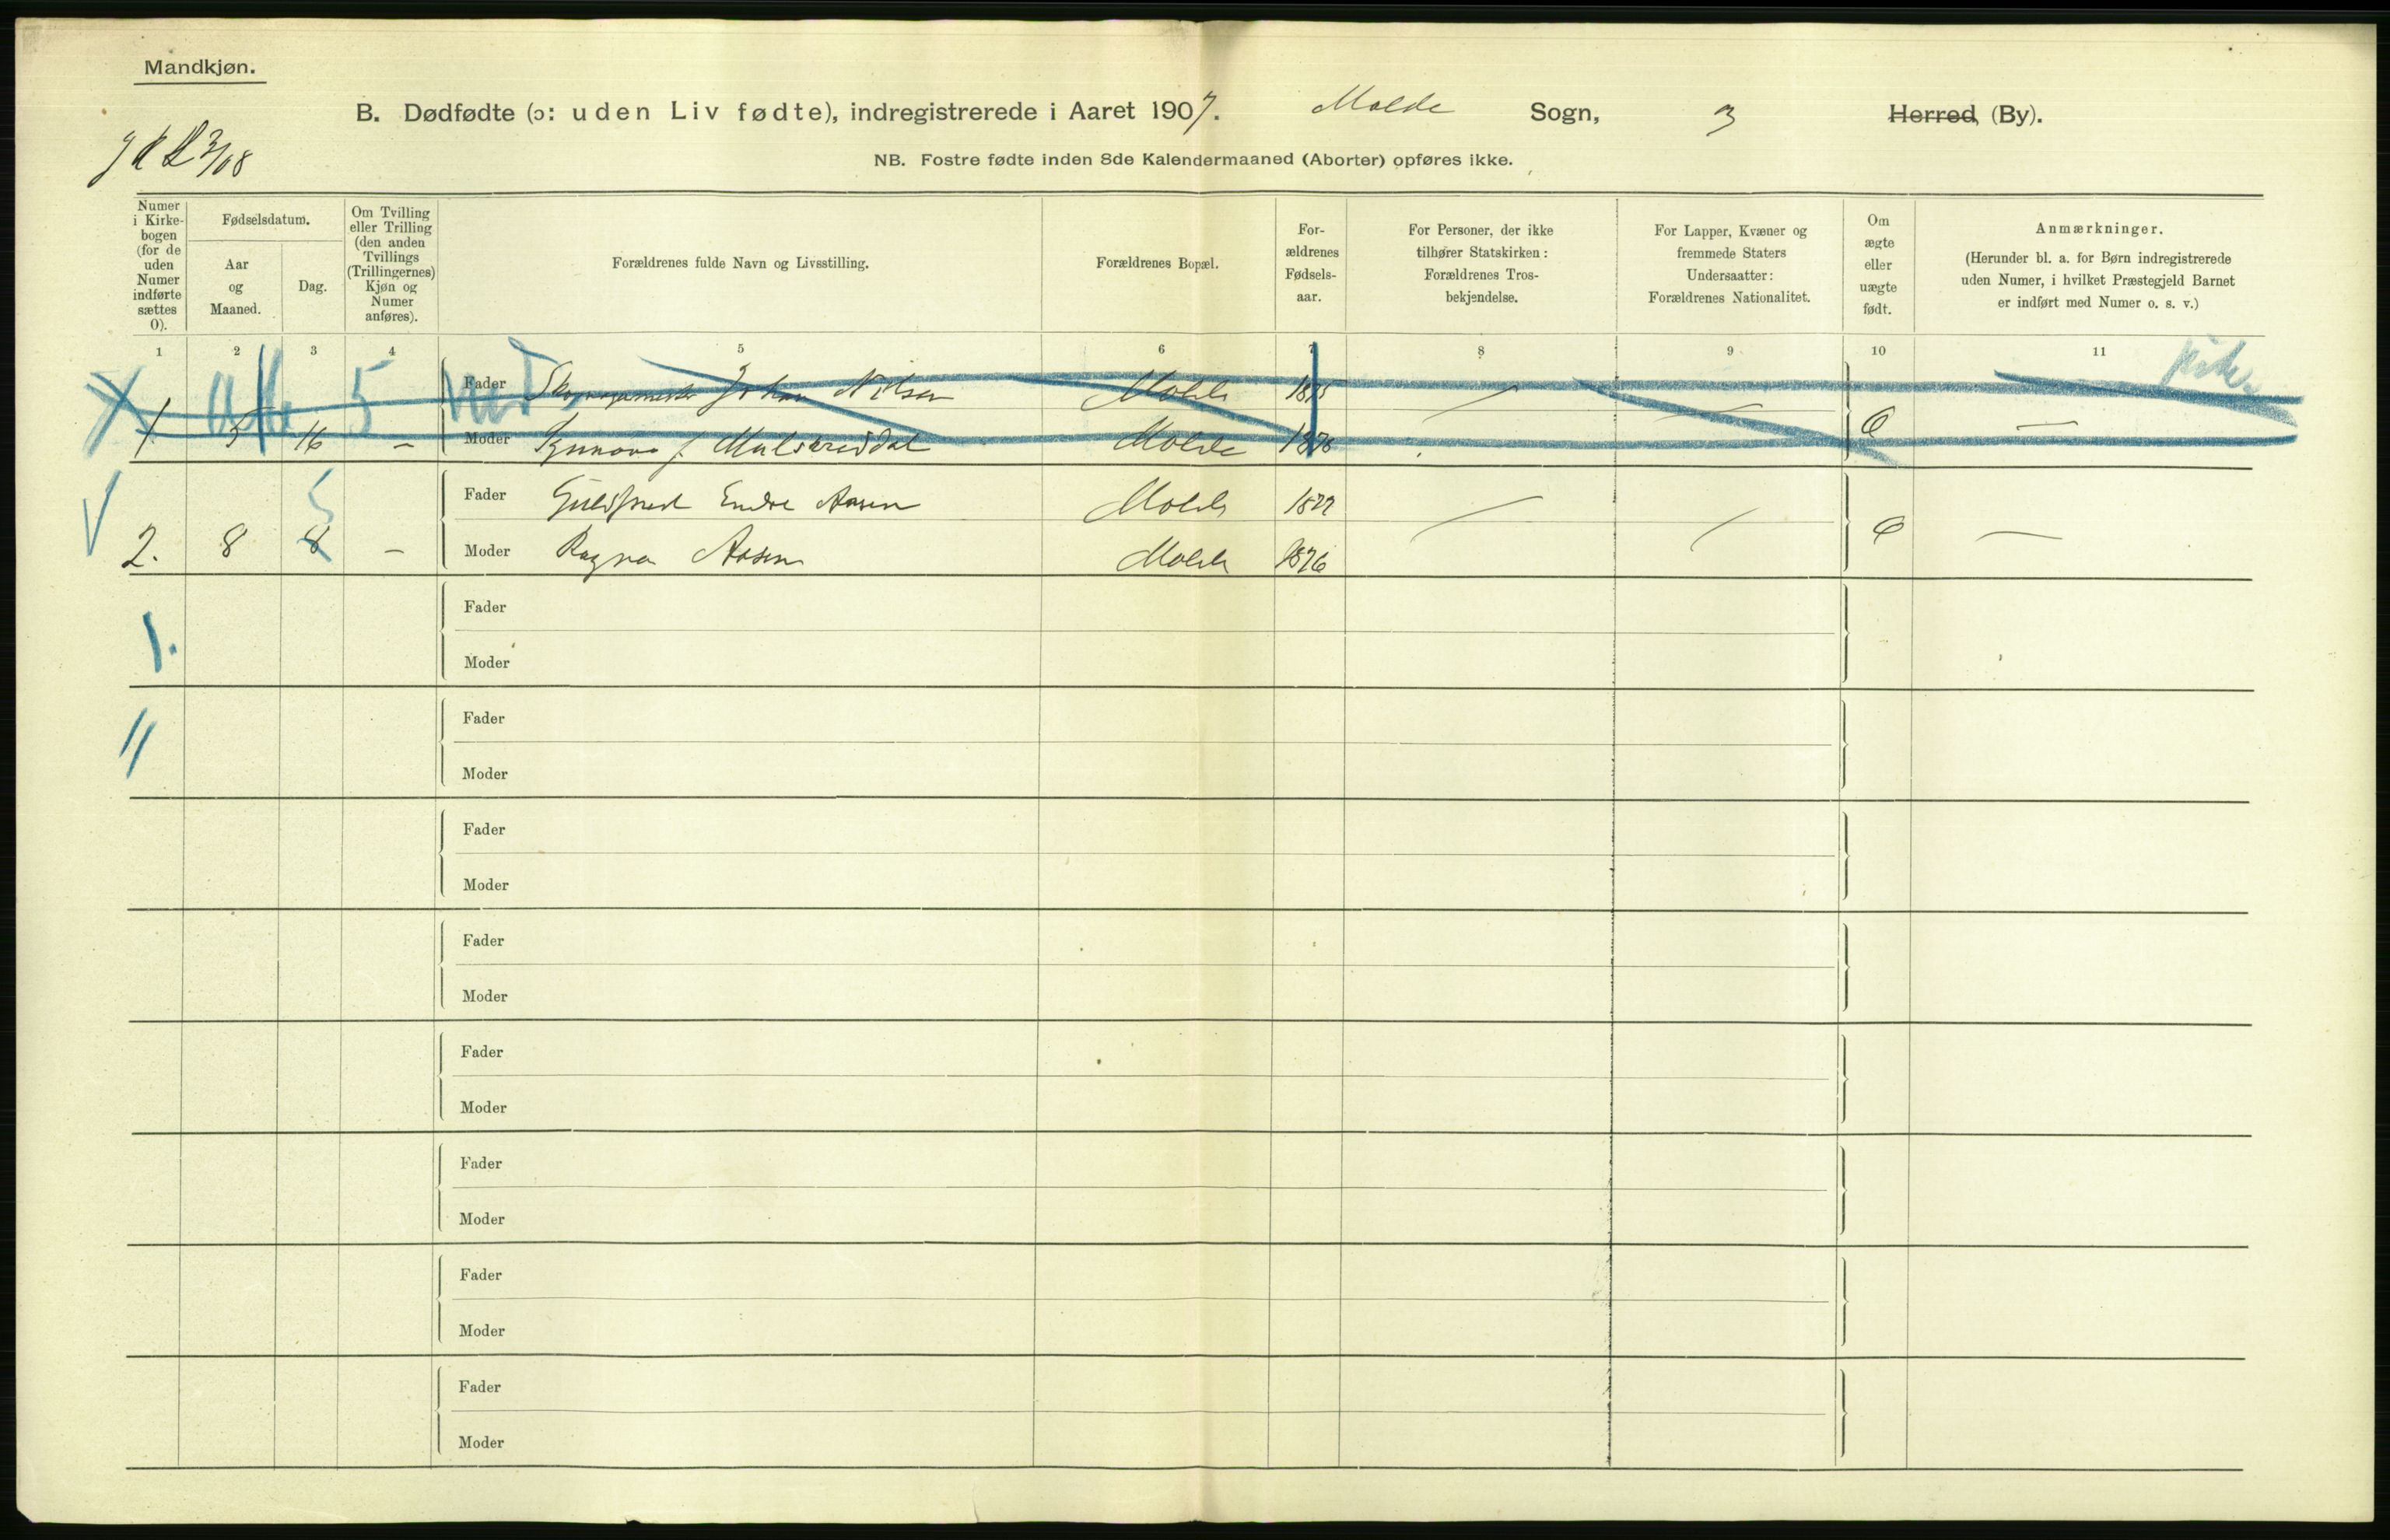 Mandkjøn.
B. Dødfødte (ɔ: uden Liv fødte), indregistrerede i Aaret 1907. Molde Sogn, 3 Herred, (By).
2/08
NB. Fostre fødte inden 8de Kalendermaaned (Aborter) opføres ikke.
Numer
i Kirke-
bogen
(for de
uden
Numer
indførte
sættes
0).
Fødselsdatum.
Aar
og
Maaned.
Dag.
Om Tvilling
eller Trilling
(den anden
Tvillings
(Trillingernes)
Kjøn og
Numer
anføres).
Forældrenes fulde Navn og Livsstilling.
Forældrenes Bopæl.
For-
ældrenes
Fødsels-
aar.
For Personer, der ikke
tilhører Statskirken:
Forældrenes Tros-
bekjendelse.
For Lapper, Kvæner og
fremmede Staters
Undersaatter:
Forældrenes Nationalitet.
Om
ægte
eller
uægte
født.
Anmærkninger.
(Herunder bl. a. for Børn indregistrerede
uden Numer, i hvilket Præstegjeld Barnet
er indført med Numer o. s. v.)
1 2 3 4 5 6 7 8 9 10 11
Fader Johan Nilsen Molde 1875
1 5 16 – Moder Molde 1876
Fader Endre Aasen Molde 1877
2. 8 8 – Moder Ragna Aasen Molde 1876 —
5
Fader
1.
Moder
Fader
Moder
Fader
Moder
Fader
Moder
Fader
Moder
Fader
Moder
Fader
Moder
Fader
Moder